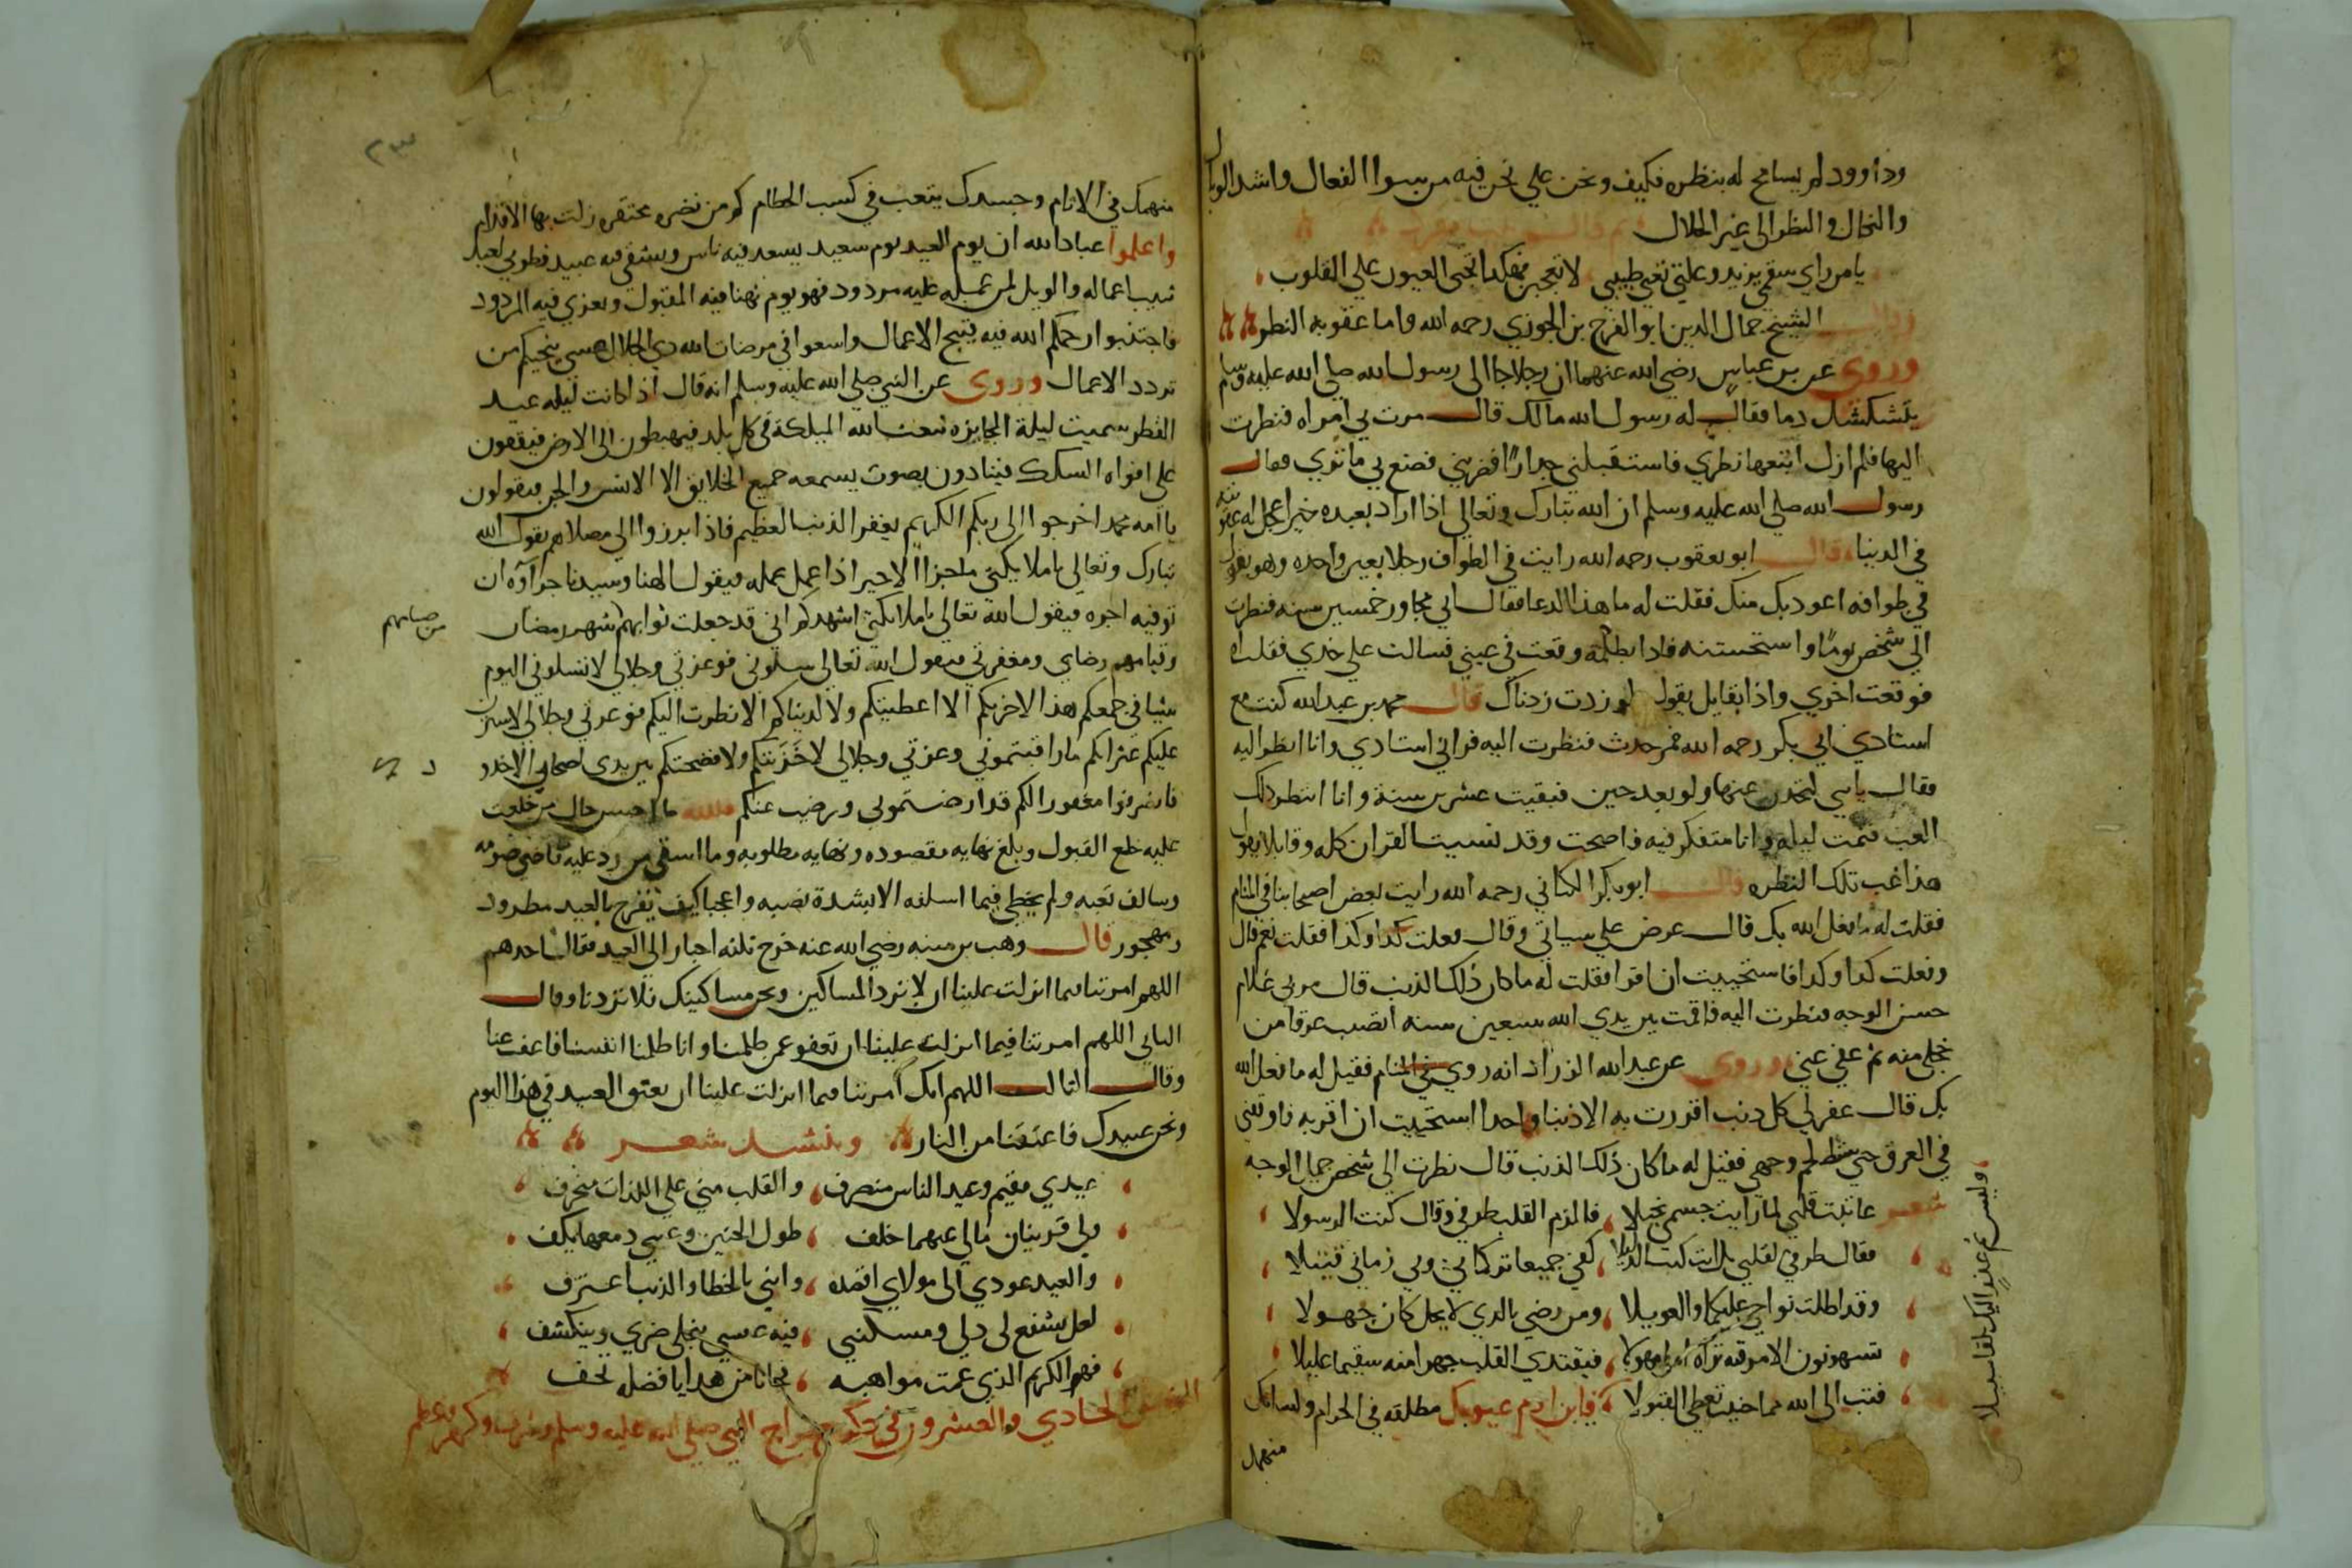 وداوود لم يسامح له بنظره فكيف ونحن علي نحن فيه من سوا الفعال واشد الوبال
والنحال والنظر الى غير الحلال
يا من راي سقمي يزيد وعلتي تعي طبيبي لا تعجبن فهكذا تجني العيون علي القلوب
الشيخ جمال الدين ابو الفرج بن الجوزي رحمه الله واما عقوبه النظر
وروي عن بن عباس رضي الله عنهما ان رجلا جا الى رسول الله صلي الله عليه وسلم
دما فقال له رسول الله مالك قال مرت بي امراه فنظرت
اليها فلم ازل اتبعها نظري فاستقبلني جدارا فضربني فصنع بي ما تري فقال
رسول الله صلي الله عليه وسلم ان الله تبارك وتعالي اذا اراد بعبده خيرا عجل له عقوبته
في الدنيا قال ابو يعقوب رحمه الله رايت في الطواف رجلا بعين واحده وهو يقول
في طوافه اعوذ بك منك فقلت له ما هذا الدعا فقال اني مجاور خمسين سنه فنظرت
الي شخص يوما واستحسنته فاذا بلطمه وقعت في عيني فسالت علي خدي فقلت اه
فوقعت اخري واذا بقايل يقول لو زدت زدناك قال محمد بن عبد الله كنت مع
استادي ابي بكر رحمه الله فمر حدث فنظرت اليه فراني استادي وانا انظر اليه
فقال يا بني لتجدن غبها ولو بعد حين فبقيت عشرين سنة وانا انتظر ذلك
الغب فنمت ليله وانا متفكر فيه فاصبحت وقد نسيت القران كله وقايلا يقول
هذا غب تلك النظره وقال ابو بكر الكتاني رحمه الله رايت بعض اصحابنا في المنام
فقلت له ما فعل الله بك قال عرض علي سياتي وقال فعلت كدا وكذا فقلت نعم قال
وفعلت كدا وكدا فاستحييت ان اقر فقلت له ما كان ذلك الذنب قال مر بي غلام
حسن الوجه فنظرت اليه فاقمت بين يدي الله سبعين سنه اتصبب عرقا من
خجلي منه ثم عفي عني وروي عن عبد الله الزراد انه روي في المنام فقيل له ما فعل الله
بك قال غفر لي كل ذنب اقررت به الا ذنبا واحدا استحييت ان اقر به فاوقفني
في العرق حتي سقط لحم وجهي فقيل له ما كان ذلك الذنب قال نظرت الى شخص جميل الوجه
شعر عاتبت قلبي لما رايت جسمي نحيلا فالزم القلب طرفي وقال كنت الرسولا
فقال طرفي لقلبي بل انت كنت الدليلا كفي جميعا تركتماني قتيلا
وقد اطلت نواحي عليكما والعويلا ومن رضي بالذي لا يحل كان جهولا
تستهونون الامر فيه تراه امرا مهولا فيغتدي القلب جهرا منه سقيما عليلا
فتب الى الله مما جنيت تعطى القبولا فيا بن ادم عيونك مطلقه في الحرام ولسانك
منهمك
وليس ثم عذر اليك تلقا سبيلا
٢٣
منهمك في الاثام وجسدك يتعب في كسب الحطام كم من نضره محتقره زلت بها الاقدام
واعلموا عباد الله ان يوم العيد يوم سعيد يسعد فيه ناس ويشقي فيه عبيد فطوبي لعبد
اعماله والويل لمن عمله عليه مردود فهو يوم يهنا فيه المقبول ويعزي فيه المردود
فاجتنبوا رحمكم الله فيه قبيح الاعمال واسعوا في مرضات الله ذي الجلال عسي ينجيكم من
تردد الاعمال وروي عن النبي صلي الله عليه وسلم انه قال اذا كانت ليله عيد
الفطر سميت ليلة الجايزه فيبعث الله المليكة في كل بلد فيهبطون الى الارض فيقفون
علي افواه السكك فينادون بصوت يسمعه جميع الخلايق الا الانس والجن فيقولون
يا امه محمد اخرجوا الى ربكم الكريم يغفر الذنب العظيم فاذا برزوا الي مصلاهم يقول الله
تبارك وتعالي يا ملايكتي ما جزا الاجير اذا عمل عمله فيقول الهنا وسيدنا جزاؤه ان
توفيه اجره فيقول الله تعالي يا ملايكتي اشهدكم اني قد جعلت ثوابهم شهر رمضان
من صيامهم
وقيامهم رضاي ومغفرتي فيقول الله تعالي سلوني فوعزتي وجلالي لا تسلوني اليوم
شيا في جمعكم هذا لاخرتكم الا اعطيتكم ولا لدنياكم الا نظرت اليكم فوعزتي وجلالي لاسترن
عليكم عثراتكم ما راقبتموني وعزتي وجلالي لا خزيتكم ولا فضحتكم بين يدي اصحاب الاخدود
فانصرفوا مغفورا لكم قد ارضيتموني ورضيت عنكم فلله ما احسن حال من خلعت
عليه خلع القبول وبلغ نهايه مقصوده ونهايه مطلوبه وما اشقي من رد عليه ماضي صومه
وسالف تعبه ولم يحظي فيما اسلفه الا بشدة نصبه واعجبا كيف يفرح بالعيد مطرود
ومهجور قال وهب بن منبه رضي الله عنه خرج ثلثه احبار الى العيد فقال احدهم
اللهم امرتنا فيما انزلت علينا ان لا نرد المساكين ونحن مساكينك فلا تردنا وقال
الثاني اللهم امرتنا فيما انزلت علينا ان نعفو عمن ظلمنا وانا ظلمنا انفسنا فاعف عنا
وقال الثالث اللهم انك امرتنا فيما انزلت علينا ان نعتق العبيد في هذا اليوم
ونحن عبيدك فاعتقنا من النار وينشد شعر
عيدي مقيم وعيد الناس منصرف والقلب مني علي اللذات منحرف
ولي قرينان مالي عنهما خلف طول الحنين وعيني دمعها يكف
والعيد عودي الى مولاي اقصده وانني بالخطا والذنب اعترف
لعل يشفع لي ذلي ومسكنتي فيه عسي ينجلي ضري وينكشف
فهو الكريم الذي عمت مواهبه من هدايا فضله تحف
الحادي والعشرون في ذكر معراج النبي صلي الله عليه وسلم وشرف وكرم وعظم